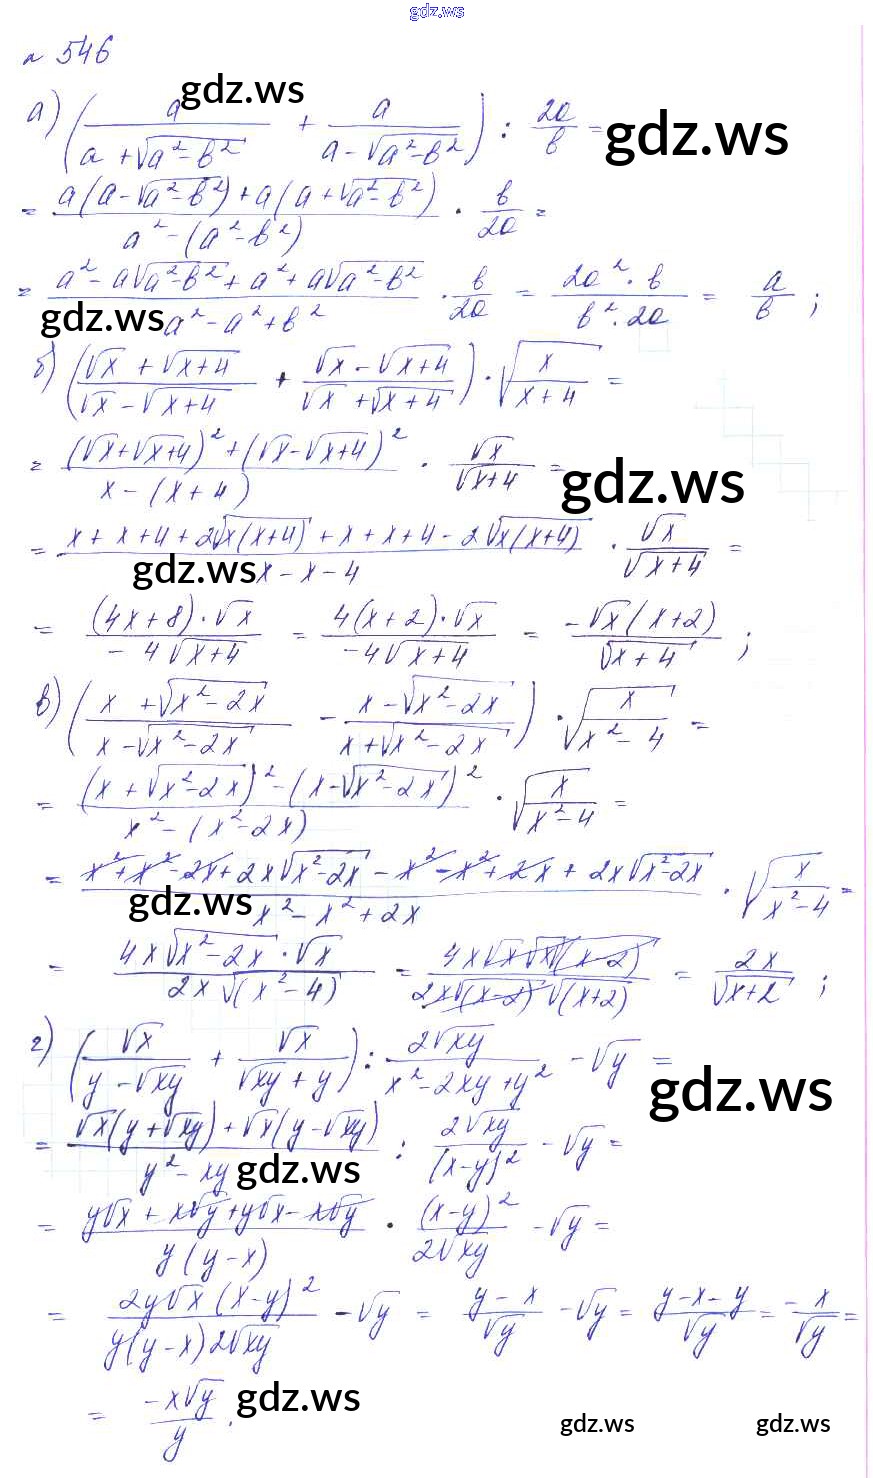 gdz.ws
№ 546
а) (a/(a + √(a² - b²)) + a/(a - √(a² - b²))) : 2a/b =
= (a(a - √(a² - b²)) + a(a + √(a² - b²)))/(a² - (a² - b²)) · b/2a =
= (a² - a√(a² - b²) + a² + a√(a² - b²))/(a² - a² + b²) · b/2a = (2a² · b)/(b² · 2a) = a/b ;
б) ((√x + √(x+4))/(√x - √(x+4)) + (√x - √(x+4))/(√x + √(x+4))) · √(x/(x+4)) =
= ((√x + √(x+4))² + (√x - √(x+4))²)/(x - (x+4)) · √x/√(x+4) =
= (x + x + 4 + 2√(x(x+4)) + x + x + 4 - 2√(x(x+4)))/(x - x - 4) · √x/√(x+4) =
= ((4x + 8) · √x)/(-4√(x+4)) = (4(x+2) · √x)/(-4√(x+4)) = (-√x(x+2))/√(x+4) ;
в) ((x + √(x² - 2x))/(x - √(x² - 2x)) - (x - √(x² - 2x))/(x + √(x² - 2x))) · √(x/(x² - 4)) =
= ((x + √(x² - 2x))² - (x - √(x² - 2x))²)/(x² - (x² - 2x)) · √(x/(x² - 4)) =
= (x² + x² - 2x + 2x√(x² - 2x) - x² - x² + 2x + 2x√(x² - 2x))/(x² - x² + 2x) · √(x/(x² - 4)) =
= (4x√(x² - 2x) · √x)/(2x√(x² - 4)) = (4x√x √x √(x-2))/(2x√(x-2) √(x+2)) = 2x/√(x+2) ;
г) (√x/(y - √xy) + √x/(√xy + y)) : 2√xy/(x² - 2xy + y²) - √y =
= (√x(y + √xy) + √x(y - √xy))/(y² - xy) : 2√xy/(x-y)² - √y =
= (y√x + x√y + y√x - x√y)/(y(y-x)) · (x-y)²/(2√xy) - √y =
= (2y√x (x-y)²)/(y(y-x) 2√xy) - √y = (y - x)/√y - √y = (y - x - y)/√y = -x/√y =
= -x√y/y .
gdz.ws
gdz.ws
gdz.ws
gdz.ws
gdz.ws
gdz.ws
gdz.ws
gdz.ws
gdz.ws
gdz.ws
gdz.ws